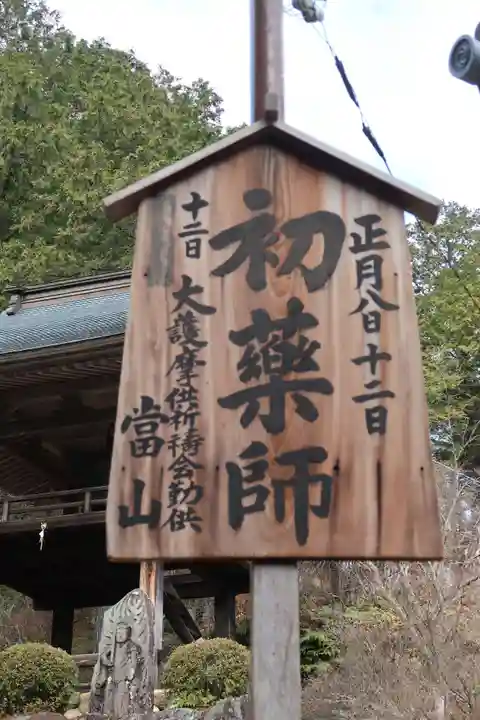 正月八日十二日
初藥師
十二日
大護摩供祈祷会勤供
當山